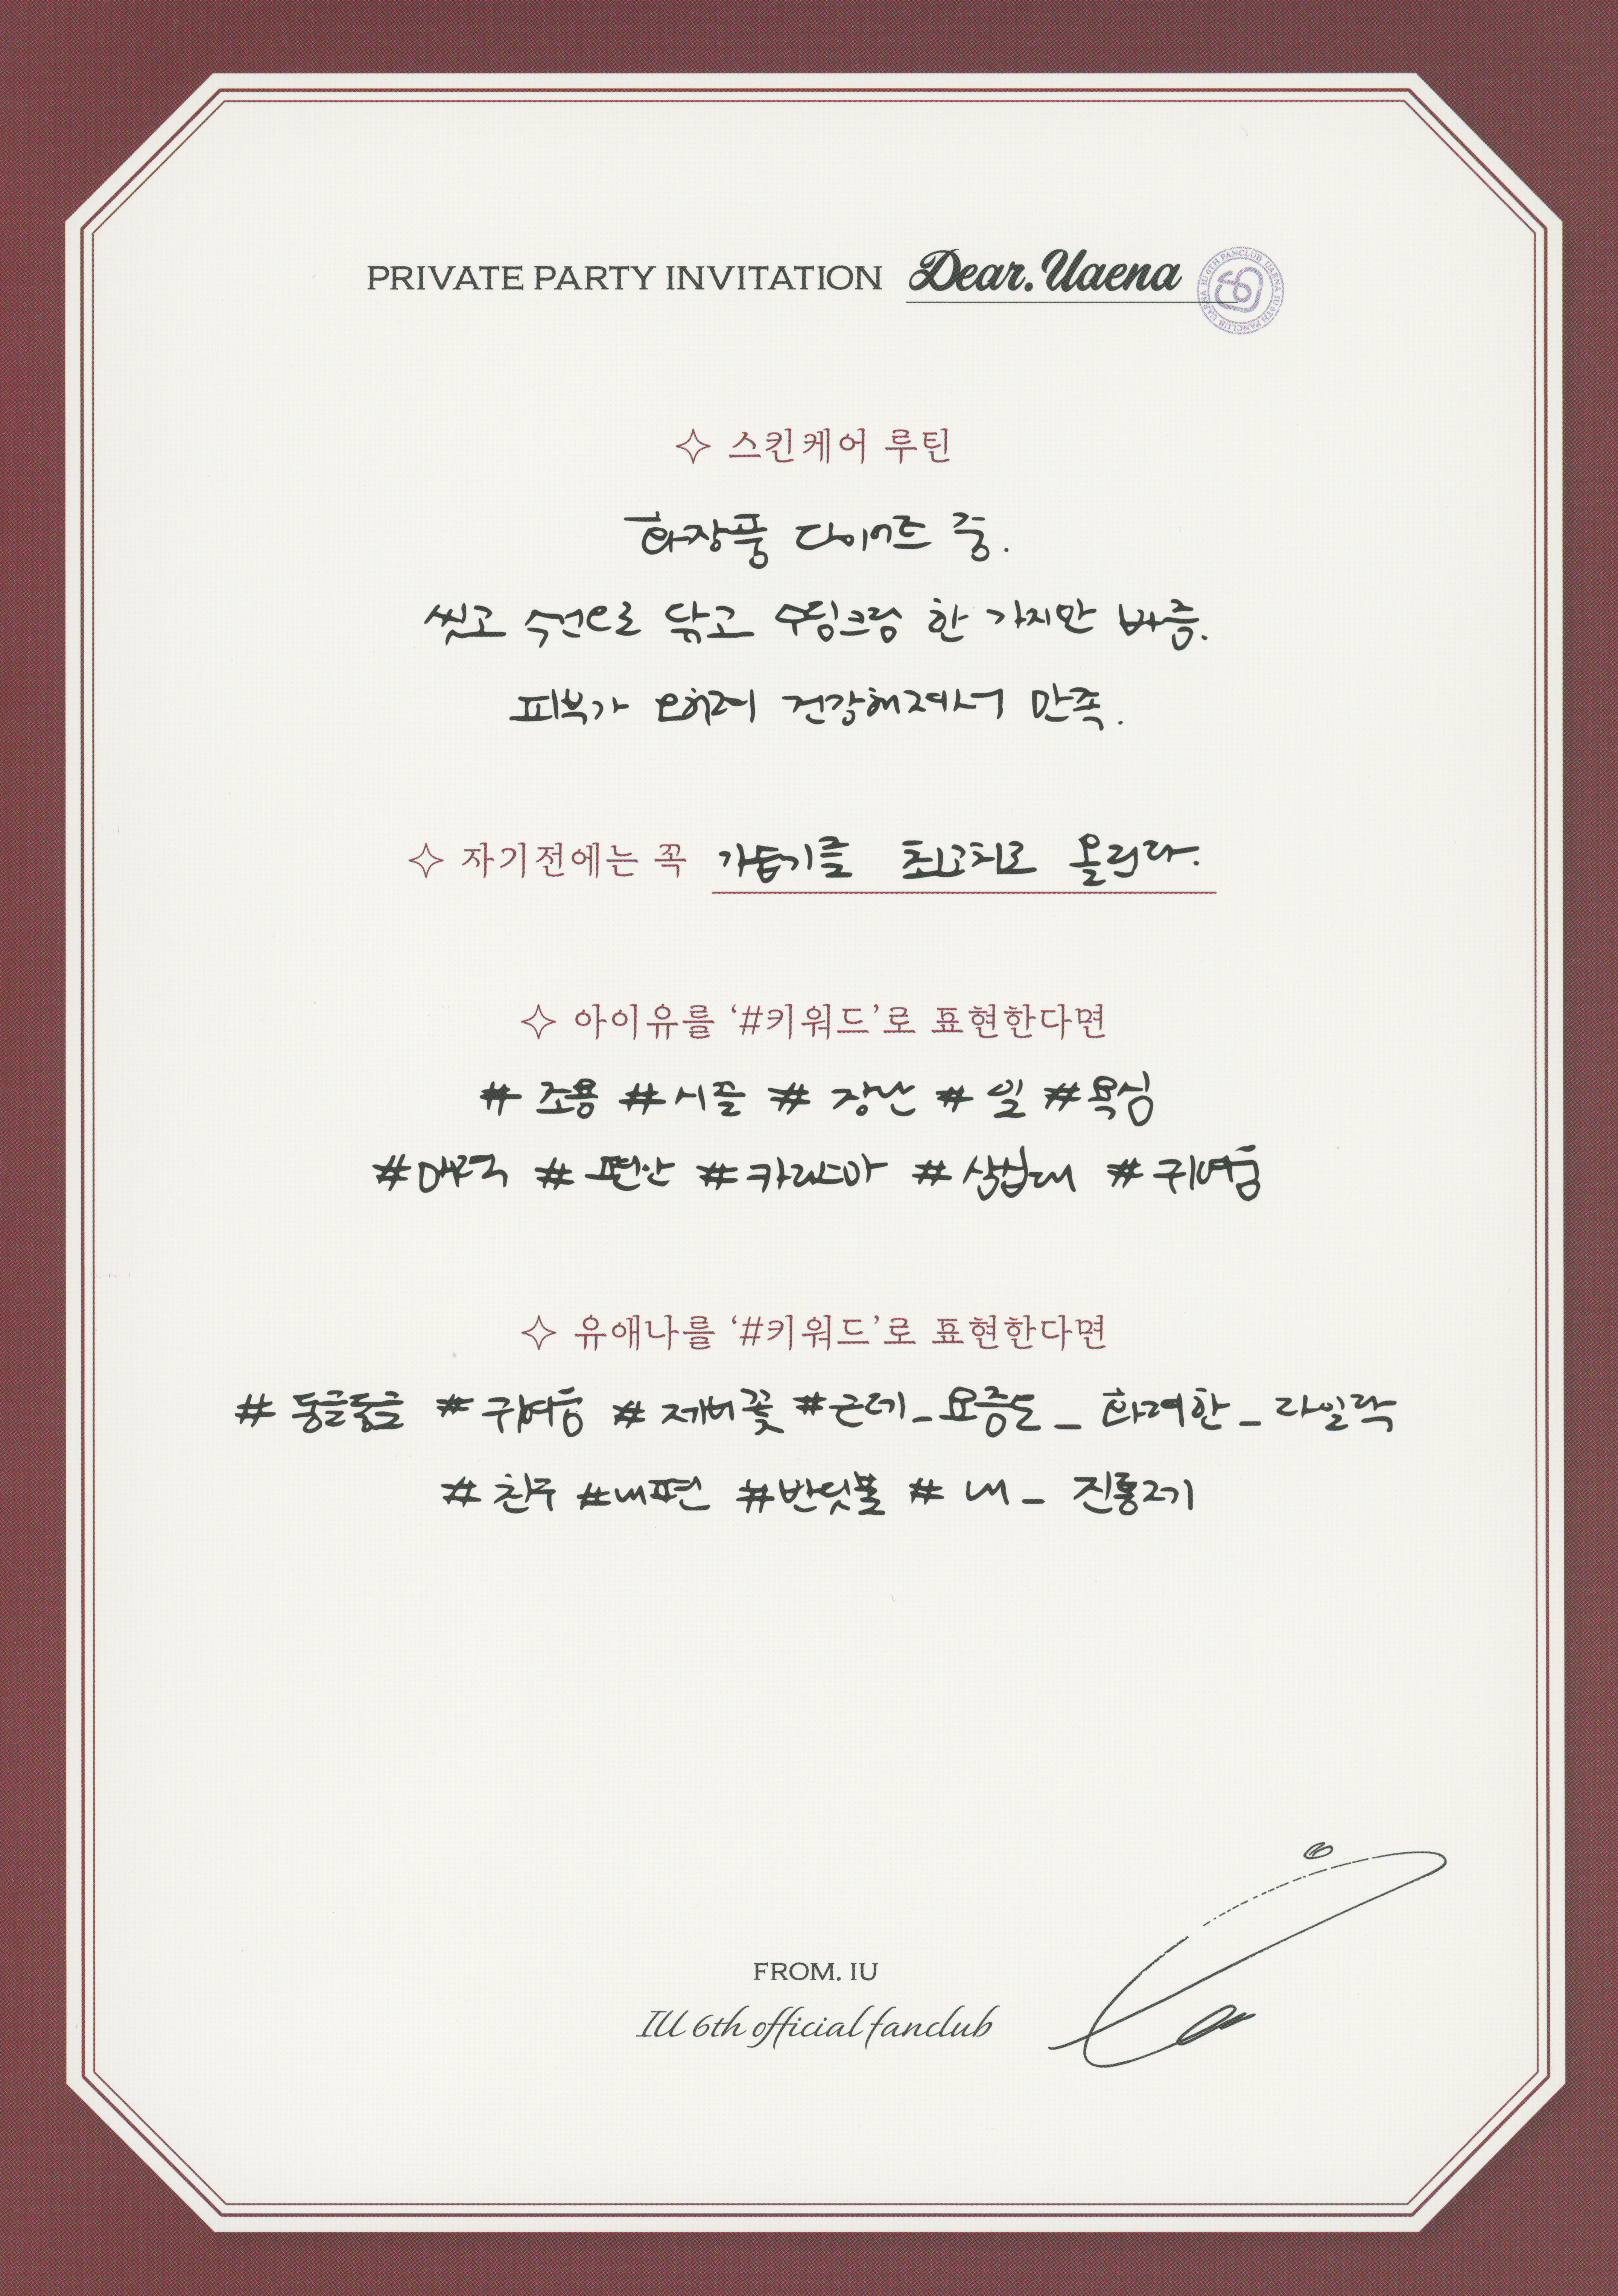 PRIVATE PARTY INVITATION Dear. Uaena
IU 6TH FANCLUB UAENA IU 6TH FANCLUB UAENA
스킨케어 루틴
화장품 다이어트 중.
씻고 수건으로 닦고 수딩크림 한 가지만 바름.
피부가 오히려 건강해져서 만족.
자기전에는 꼭 가습기를 최고치로 올린다.
아이유를 '#키워드'로 표현한다면
# 조용 # 시끌 # 장난 # 일 # 욕심
# 매력 # 편안 # 카리스마 # 삼겹대 # 귀여움
유애나를 '#키워드'로 표현한다면
# 둥글둥글 # 귀여움 # 제비꽃 #근데_요즘도_화려한_라일락
# 친구 #내편 #반딧불 # 내_진통제
FROM. IU
IU 6th official fanclub